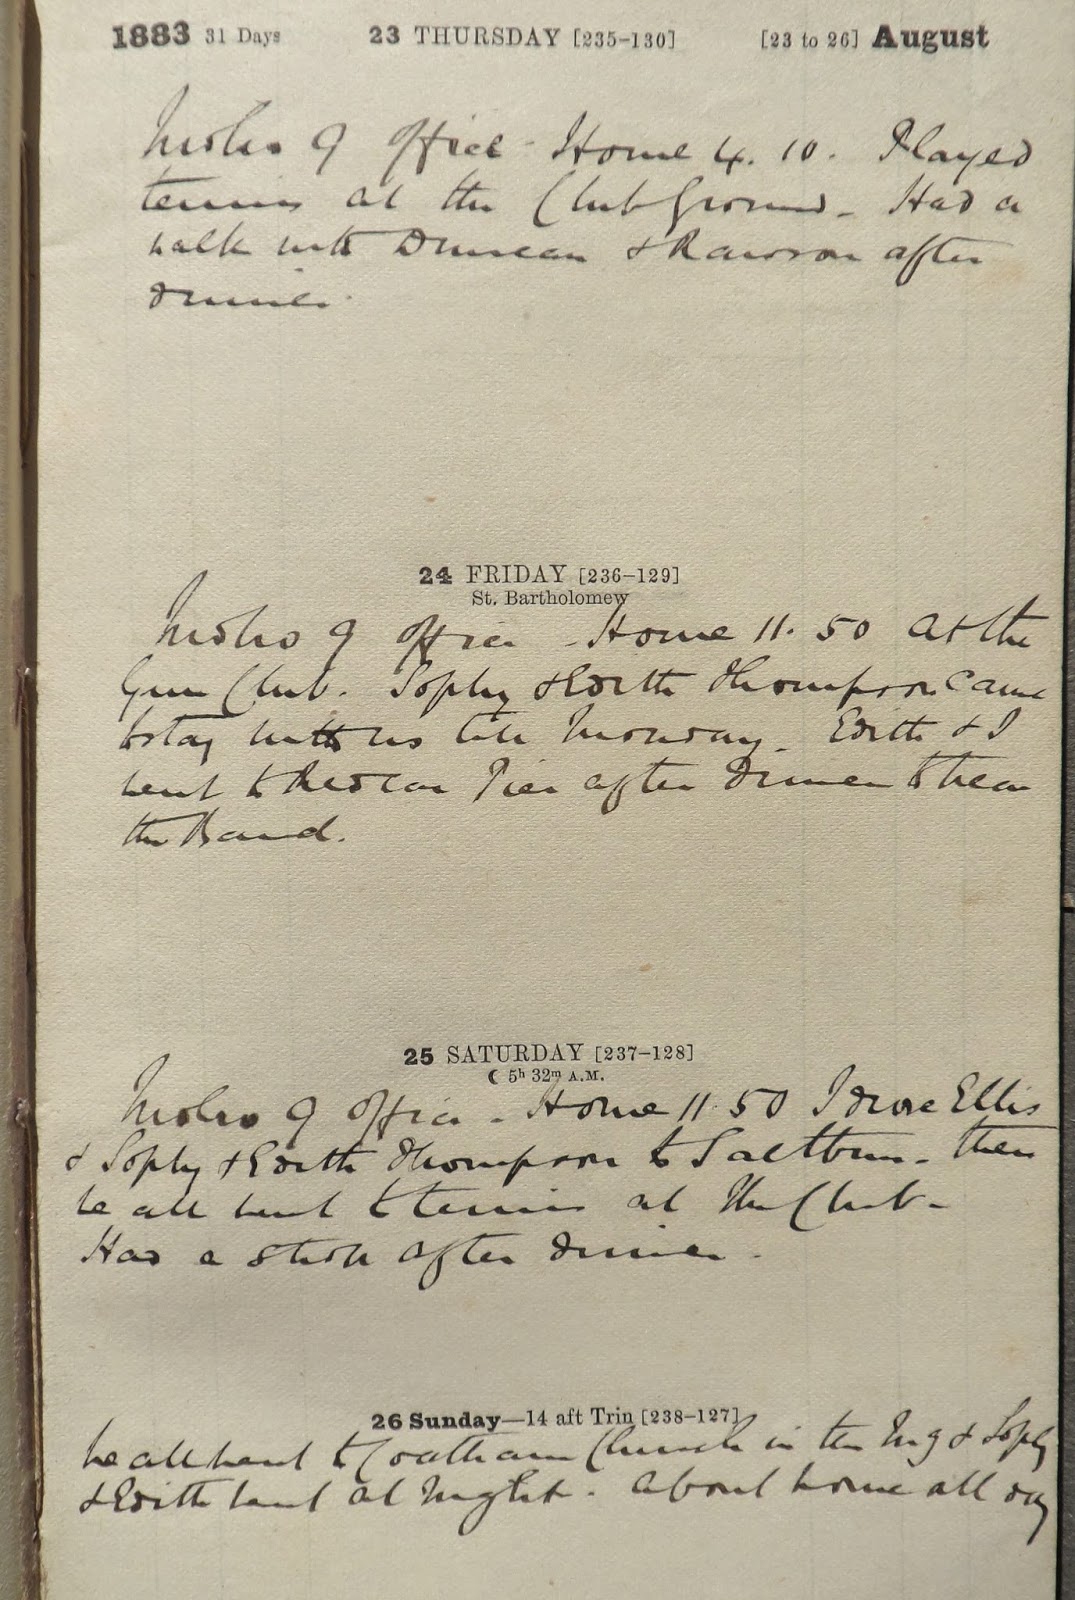 1883 31 Days 23 THURSDAY [235-130] [23 to 26] August
Mbro 9 Office - Home 4.10. Played
tennis at the Club Ground - Had a
walk with Duncan & Rawson after
dinner.
24 FRIDAY [236-129]
St. Bartholomew
Mbro 9 Office - Home 11.50 At the
Gun Club. Sophy & Edith Thompson came
to stay with us till Monday. Edith & I
went to Redcar Pier after dinner to hear
the Band.
25 SATURDAY [237-128]
☾ 5h 32m A.M.
Mbro 9 Office - Home 11.50 I drove Ellis
& Sophy & Edith Thompson to Saltburn - then
we all went to tennis at the Club -
Had a stroll after dinner -
26 Sunday—14 aft Trin [238-127]
We all went to Coatham Church in the Mg & Sophy
& Edith went at Night. About home all day